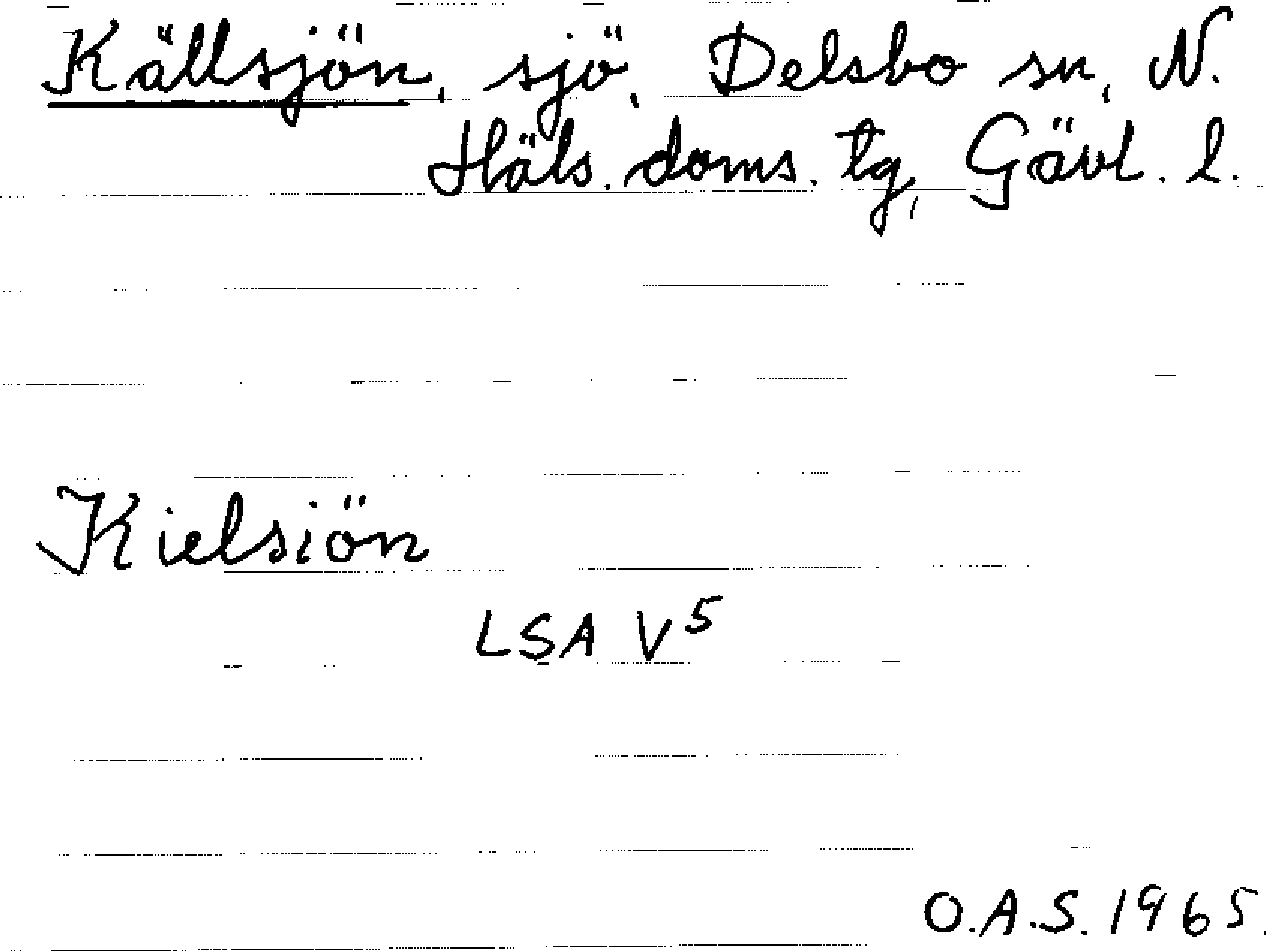 Källsjön, sjö, Delsbo sn, N.
Häls. doms. tg, Gävl. l.
Kielsiön
LSA V5
O.A.S. 1965.